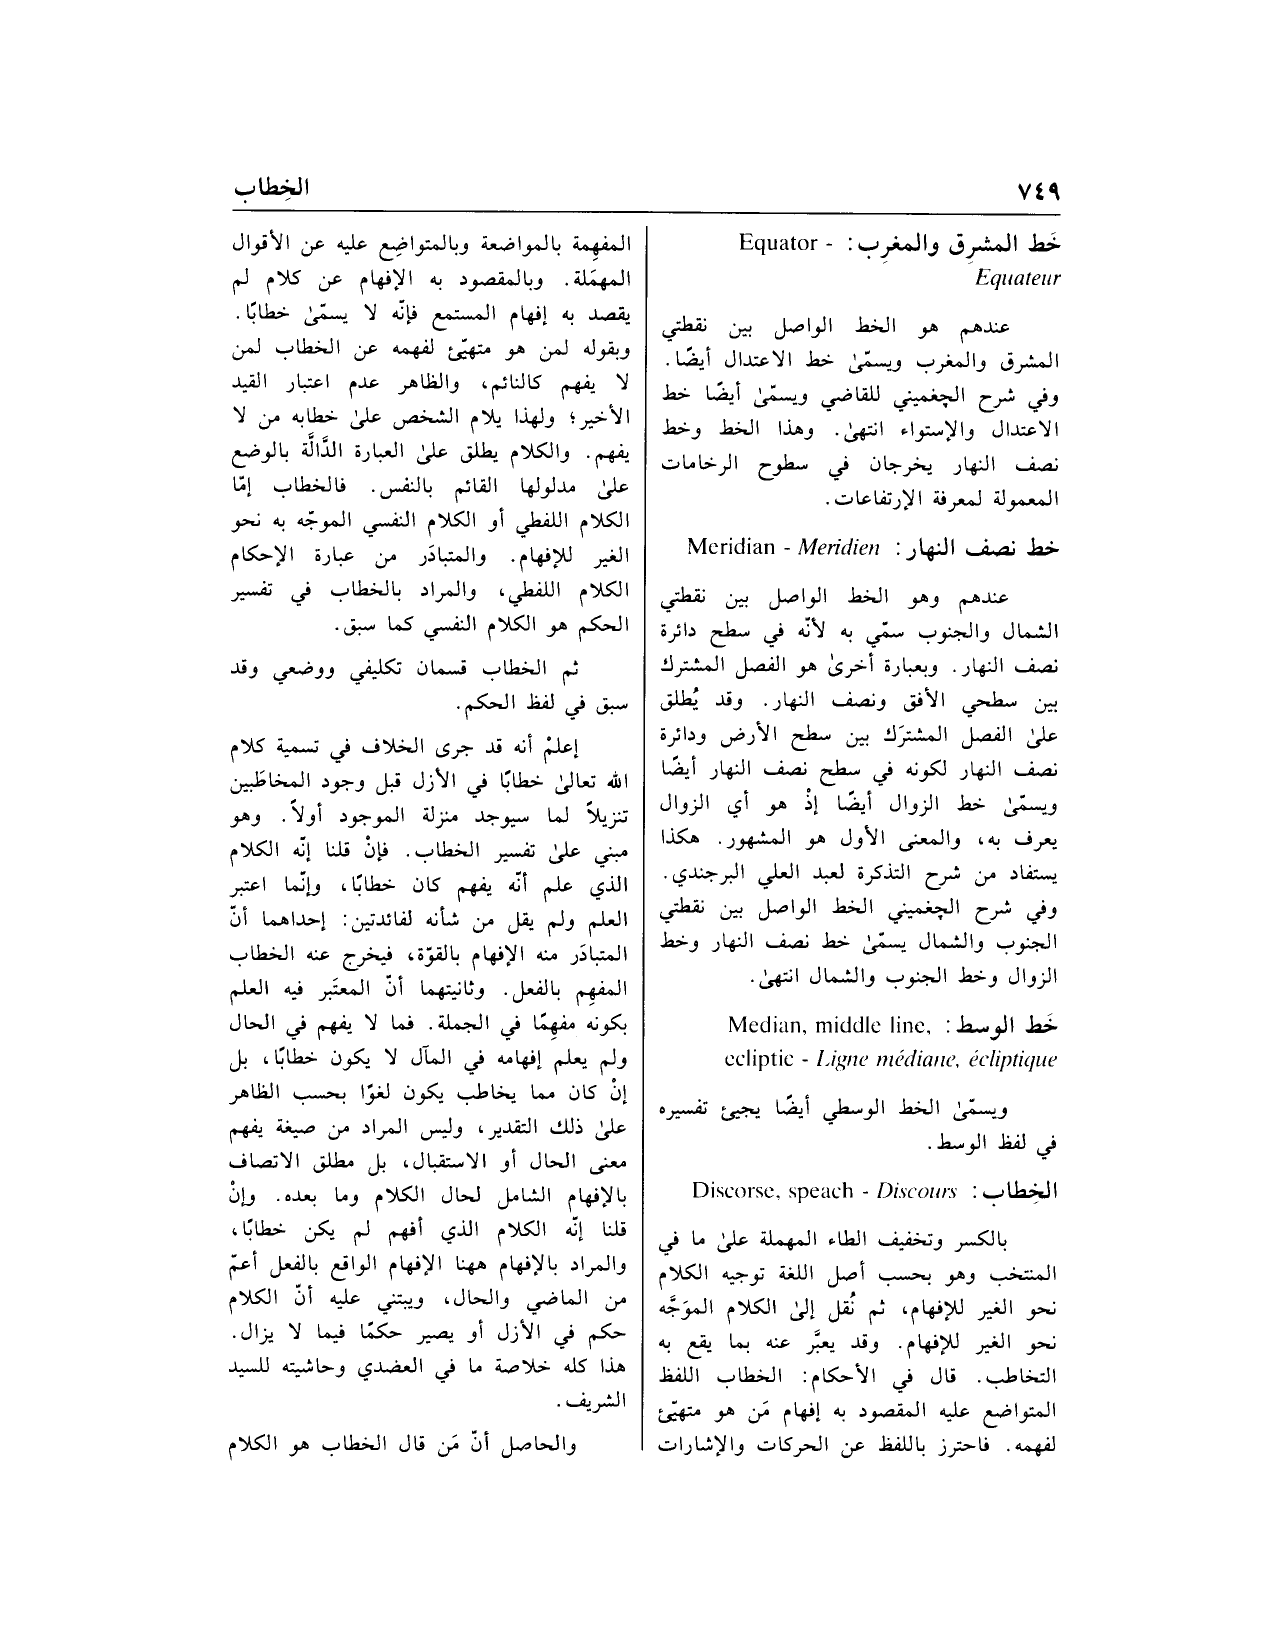 ٧٤٩
الخِطاب
خَط المشرِق والمغرِب: Equator -
Equateur
عندهم هو الخط الواصل بين نقطتي
المشرق والمغرب ويسمّىٰ خط الاعتدال أيضًا.
وفي شرح الچغميني للقاضي ويسمّىٰ أيضًا خط
الاعتدال والإستواء انتهىٰ. وهذا الخط وخط
نصف النهار يخرجان في سطوح الرخامات
المعمولة لمعرفة الإرتفاعات.
خط نصف النهار: Meridian - Meridien
عندهم وهو الخط الواصل بين نقطتي
الشمال والجنوب سمّي به لأنّه في سطح دائرة
نصف النهار. وبعبارة أخرىٰ هو الفصل المشترك
بين سطحي الأفق ونصف النهار. وقد يُطلق
علىٰ الفصل المشترَك بين سطح الأرض ودائرة
نصف النهار لكونه في سطح نصف النهار أيضًا
ويسمّىٰ خط الزوال أيضًا إذْ هو أي الزوال
يعرف به، والمعنى الأول هو المشهور. هكذا
يستفاد من شرح التذكرة لعبد العلي البرجندي.
وفي شرح الچغميني الخط الواصل بين نقطتي
الجنوب والشمال يسمّىٰ خط نصف النهار وخط
الزوال وخط الجنوب والشمال انتهىٰ.
خَط الوسط: Median, middle line,
ecliptic - Ligne médiane, écliptique
ويسمّىٰ الخط الوسطي أيضًا يجيئ تفسيره
في لفظ الوسط.
الخِطاب: Discorse, speach - Discours
بالكسر وتخفيف الطاء المهملة علىٰ ما في
المنتخب وهو بحسب أصل اللغة توجيه الكلام
نحو الغير للإفهام، ثم نُقل إلىٰ الكلام الموَجَّه
نحو الغير للإفهام. وقد يعبَّر عنه بما يقع به
التخاطب. قال في الأحكام: الخطاب اللفظ
المتواضع عليه المقصود به إفهام مَن هو متهيّئ
لفهمه. فاحترز باللفظ عن الحركات والإشارات
المفهِمة بالمواضعة وبالمتواضِع عليه عن الأقوال
المهمَلة. وبالمقصود به الإفهام عن كلام لم
يقصد به إفهام المستمع فإنّه لا يسمّىٰ خطابًا.
وبقوله لمن هو متهيّئ لفهمه عن الخطاب لمن
لا يفهم كالنائم، والظاهر عدم اعتبار القيد
الأخير؛ ولهذا يلام الشخص علىٰ خطابه من لا
يفهم. والكلام يطلق علىٰ العبارة الدَّالَّة بالوضع
علىٰ مدلولها القائم بالنفس. فالخطاب إمّا
الكلام اللفظي أو الكلام النفسي الموجّه به نحو
الغير للإفهام. والمتبادَر من عبارة الإحكام
الكلام اللفظي، والمراد بالخطاب في تفسير
الحكم هو الكلام النفسي كما سبق.
ثم الخطاب قسمان تكليفي ووضعي وقد
سبق في لفظ الحكم.
إعلمْ أنه قد جرى الخلاف في تسمية كلام
الله تعالىٰ خطابًا في الأزل قبل وجود المخاطَبين
تنزيلاً لما سيوجد منزلة الموجود أولاً. وهو
مبني علىٰ تفسير الخطاب. فإنْ قلنا إنّه الكلام
الذي علم أنّه يفهم كان خطابًا، وإنّما اعتبر
العلم ولم يقل من شأنه لفائدتين: إحداهما أنّ
المتبادَر منه الإفهام بالقوّة، فيخرج عنه الخطاب
المفهِم بالفعل. وثانيتهما أنّ المعتَبر فيه العلم
بكونه مفهِمًا في الجملة. فما لا يفهم في الحال
ولم يعلم إفهامه في المآل لا يكون خطابًا، بل
إنْ كان مما يخاطب يكون لغوًا بحسب الظاهر
علىٰ ذلك التقدير، وليس المراد من صيغة يفهم
معنى الحال أو الاستقبال، بل مطلق الاتصاف
بالإفهام الشامل لحال الكلام وما بعده. وإنْ
قلنا إنّه الكلام الذي أفهم لم يكن خطابًا،
والمراد بالإفهام ههنا الإفهام الواقع بالفعل أعمّ
من الماضي والحال، ويبتني عليه أنّ الكلام
حكم في الأزل أو يصير حكمًا فيما لا يزال.
هذا كله خلاصة ما في العضدي وحاشيته للسيد
الشريف.
والحاصل أنّ مَن قال الخطاب هو الكلام